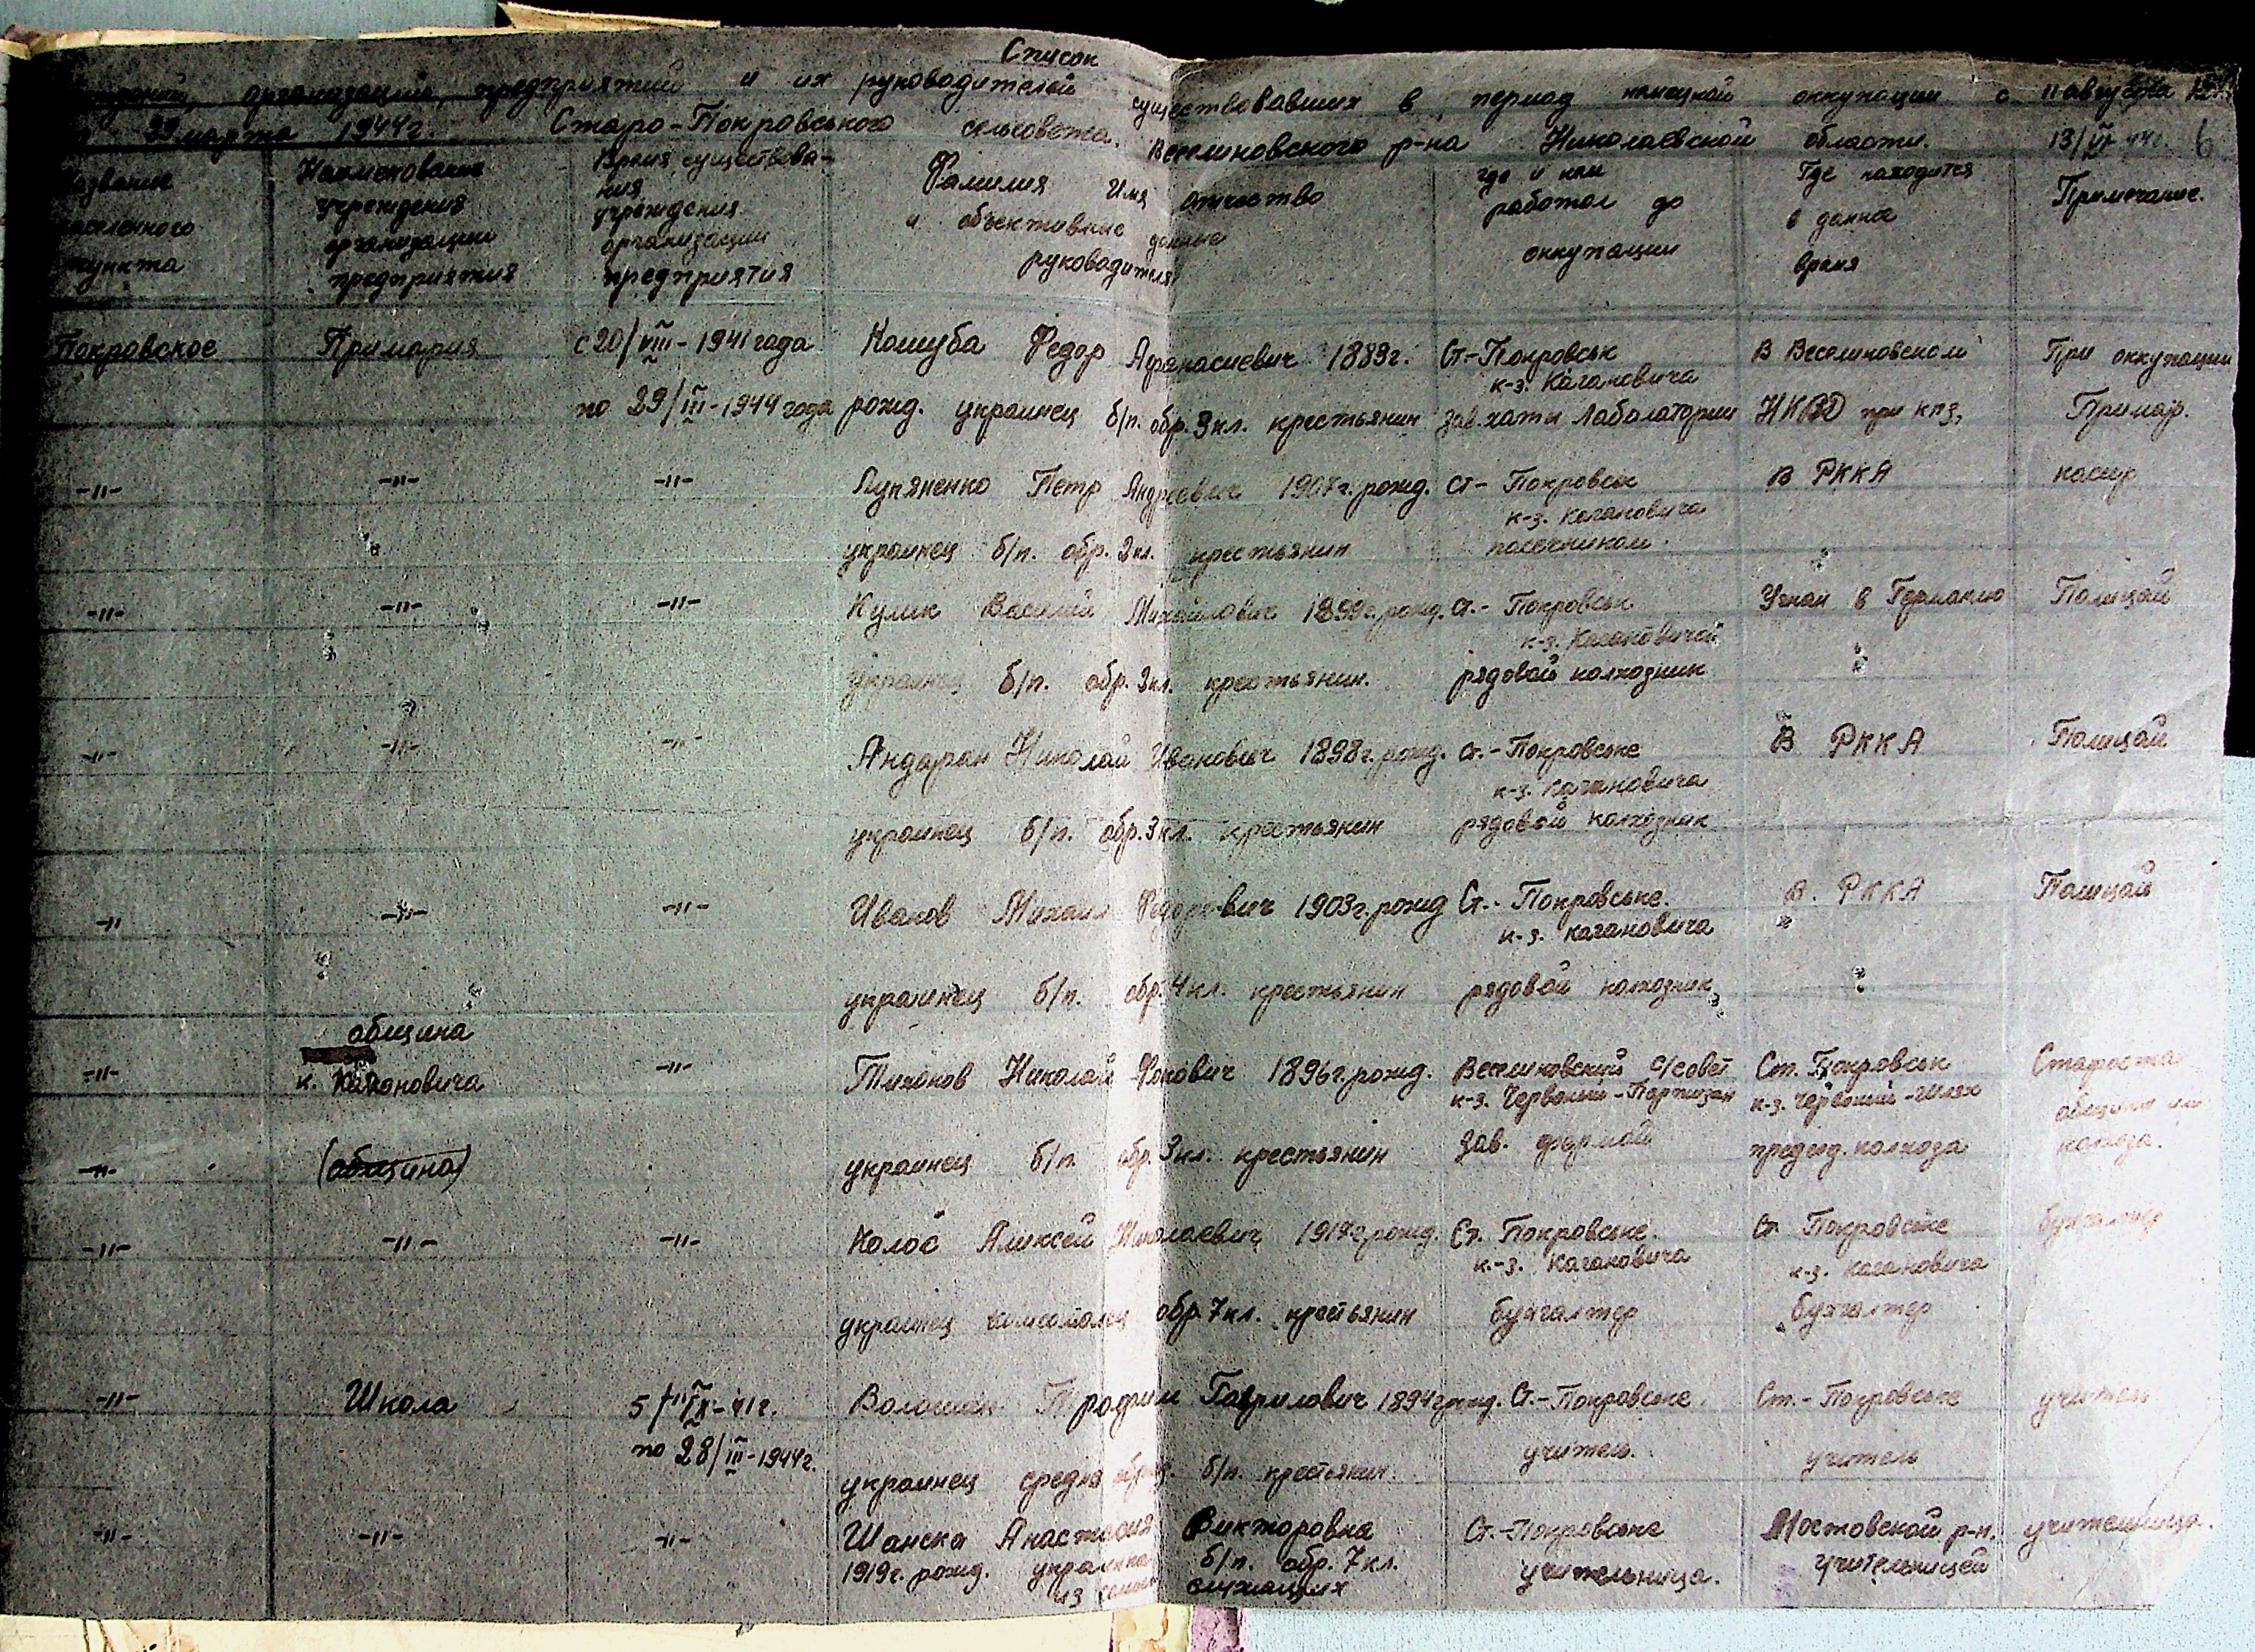 Список
организаций, предприятий и их руководителей существовавших в период немецкой оккупации с 11 августа
29 марта 1944 г. Старо-Покровського сельсовета. Веселиновского р-на Николаевской области. 13/VI 44 г. 6
Наименование учреждения организации предприятия
Время существова-
ния
учреждения
организации
предприятия
Фамилия Имя отчество
и объективные данные
руководителя
где и кем
работал до
оккупации
Где находится
в данное
время
Примечание.
Покровское Примария с 20/VIII-1941 года Кошуба Федор Афанасиевич 1889г. Ст-Покровськ В Веселиновском При оккупации
к-з. Кагановича
по 29/III-1944 года рожд. украинец б/п. обр. 3 кл. крестьянин зав. хаты лаболатории НКВД при кпз, Примар.
-"- -"- -"- Лупяненко Петр Андреевич 1907г. рожд. Ст- Покровськ В РККА касир
к-з. Кагановича
украинец б/п. обр. 2 кл. крестьянин пасечником.
-"- -"- -"- Кулик Василий Михайлович 1899г. рожд. Ст.- Покровськ Угнан в Германию Полицай
к-з. Кагановича
украинец б/п. обр. 3 кл. крестьянин. рядовой колхозник
-"- -"- -"- Андаран Николай Иванович 1898г. рожд. Ст.- Покровське В РККА Полицай
к-з. Кагановича
украинец б/п. обр. 3 кл. крестьянин рядовой колхозник
-"- -"- -"- Иванов Михаил 1903г. рожд Ст.- Покровське. В. РККА Полицай
к-з. Кагановича
украинец б/п. обр. 4 кл. крестьянин рядовой колхозник
община
-"- к. Кагановича -"- Тихонов Николай Фокович 1896г. рожд. Веселиновский с/совет Ст. Покровськ Староста
к-з. Червоный-Партизан к-з. Червоний-Шлях общины
-"- (община) украинец б/п. обр. 3 кл. крестьянин Зав. фермой председ. колхоза колхоза.
-"- -"- -"- Колос Алексей Николаевич 1917г. рожд. Ст. Покровське. Ст Покровське бухгалтер
к.-з. Кагановича к-з. Кагановича
украинец комсомолец обр. 7 кл. крестьянин бухгалтер бухгалтер
-"- Школа 5/IX-41г. Волошин Трофим Гаврилович 1894г рожд. Ст.-Покровське. Ст.-Покровське учитель
по 28/III-1944г. украинец средня образ. б/п. крестьянин. учитель. учитель
-"- -"- -"- Шанска Анастасия Викторовна Ст.-Покровське Мостовской р-н. учительница.
1919г. рожд. украинка б/п. обр. 7 кл. учительница. учительницей
из семьи служащих